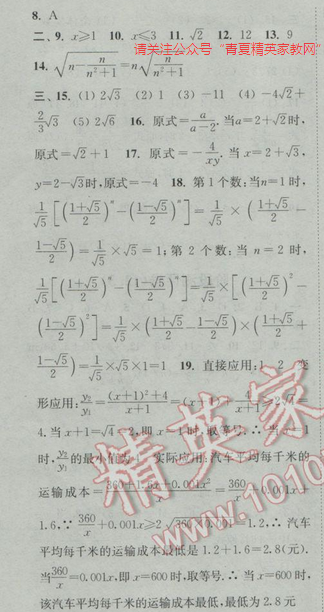 8. A
请关注公众号"青夏精英家教网"
二、9. x⩾1 10. x⩽3 11. √2 12. 12 13. 9
14. √(n-n/(n²+1))=n√(n/(n²+1))
三、15. (1) 2√3 (2) 1 (3) -11 (4) -4√2+
2/3√3 (5) 2√6 16. 原式=a/(a-2). 当a=2+√2时,
原式=√2+1 17. 原式=-4/(xy). 当 x=2+√3,
y=2-√3时,原式=-4 18. 第1个数:当n=1时,
1/√5[((1+√5)/2)ⁿ-((1-√5)/2)ⁿ]=1/√5×((1+√5)/2-
(1-√5)/2)=1/√5×√5=1;第2个数:当n=2时,
1/√5[((1+√5)/2)ⁿ-((1-√5)/2)ⁿ]=1/√5×[((1+√5)/2)²-
((1-√5)/2)²]=1/√5×((1+√5)/2-(1-√5)/2)×((1+√5)/2+
(1-√5)/2)=1/√5×√5×1=1 19. 直接应用:1 2 变
形应用:y₂/y₁=((x+1)²+4)/(x+1)=(x+1)+4/(x+1)⩾2√4=
4.当x+1=√4=2,即x=1时,取等号.∴当x=1
时,y₂/y₁的最小值为4 实际应用:汽车平均每千米的
运输成本=(360+1.6x+0.001x²)/x=360/x+0.001x+
1.6,∵360/x+0.001x⩾2√(360×0.001)=1.2,∴汽车
平均每千米的运输成本最低是1.2+1.6=2.8(元).
当360/x=0.001x,即x=600时,取等号.∴当x=600时,
该汽车平均每千米的运输成本最低,最低为2.8元
精英家教网
www.1010